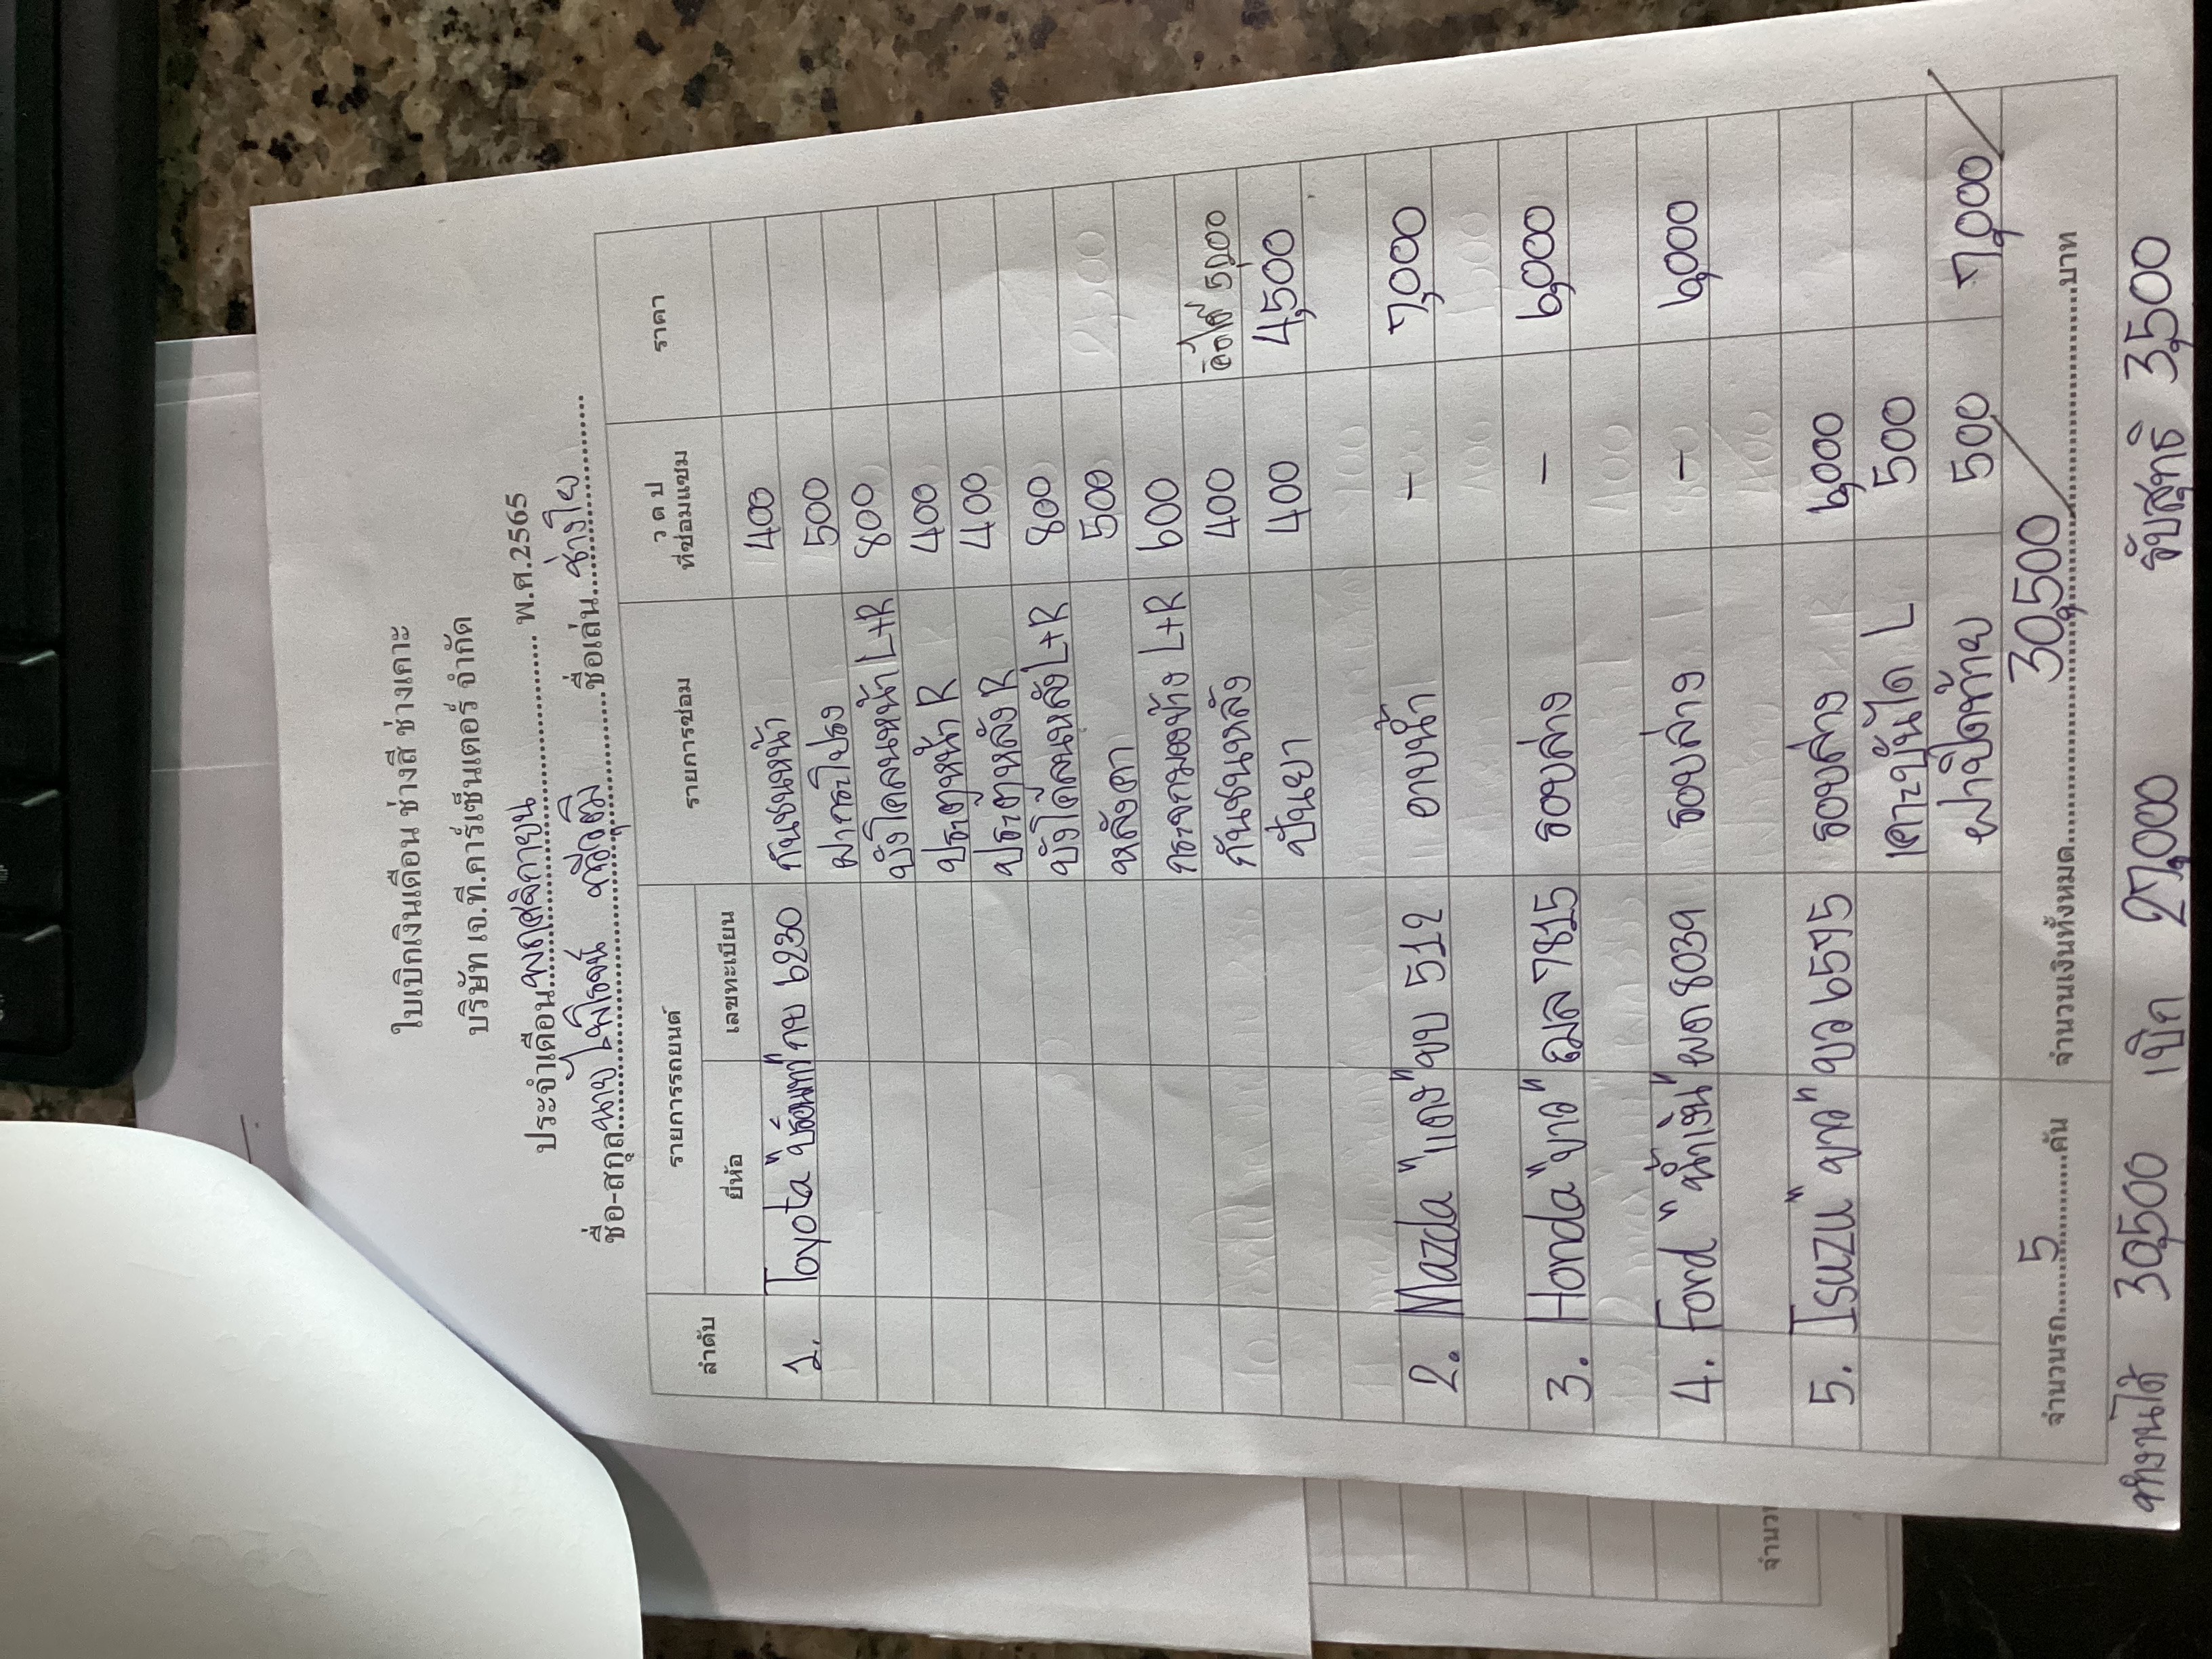 ใบเบิกเงินเดือน ช่างสี ช่างเคาะ
บริษัท เจ.ที.คาร์เซ็นเตอร์ จำกัด
ประจำเดือน พฤศจิกายน พ.ศ.2565
ชื่อ-สกุล นายไพโรจน์ ชื่อเล่น ช่างโย
ลำดับ รายการรถยนต์ รายการซ่อม ว ด ป ที่ซ่อมแซม ราคา
ยี่ห้อ เลขทะเบียน
1. Toyota "บรอนทา" กบ 6230 กันชนหน้า 400
ฝากระโปรง 500
บังโคลนหน้า L+R 800
ประตูหน้า R 400
ประตูหลัง R 400
บังโคลนหลัง L+R 800
หลังคา 500
กระจกมองข้าง L+R 600
กันชนหลัง 400 5,000
ปั่นยา 400 4,500
2. Mazda "แดง" ขบ 512 อาบน้ำ - 7,000
3. Honda "ขาว" ฌล 7815 รอบล่าง - 6,000
4. Ford "น้ำเงิน" ผด 8039 รอบล่าง - 6,000
5. Isuzu "ขาว" ขว 6575 รอบล่าง 6,000
เคาะบันได L 500
ฝาปิดท้าย 500 7,000
จำนวนรถ 5 คัน จำนวนเงินทั้งหมด 30,500 บาท
ทำงานได้ 30,500 เบิก 27,000 รับสุทธิ 3,500
จำนว